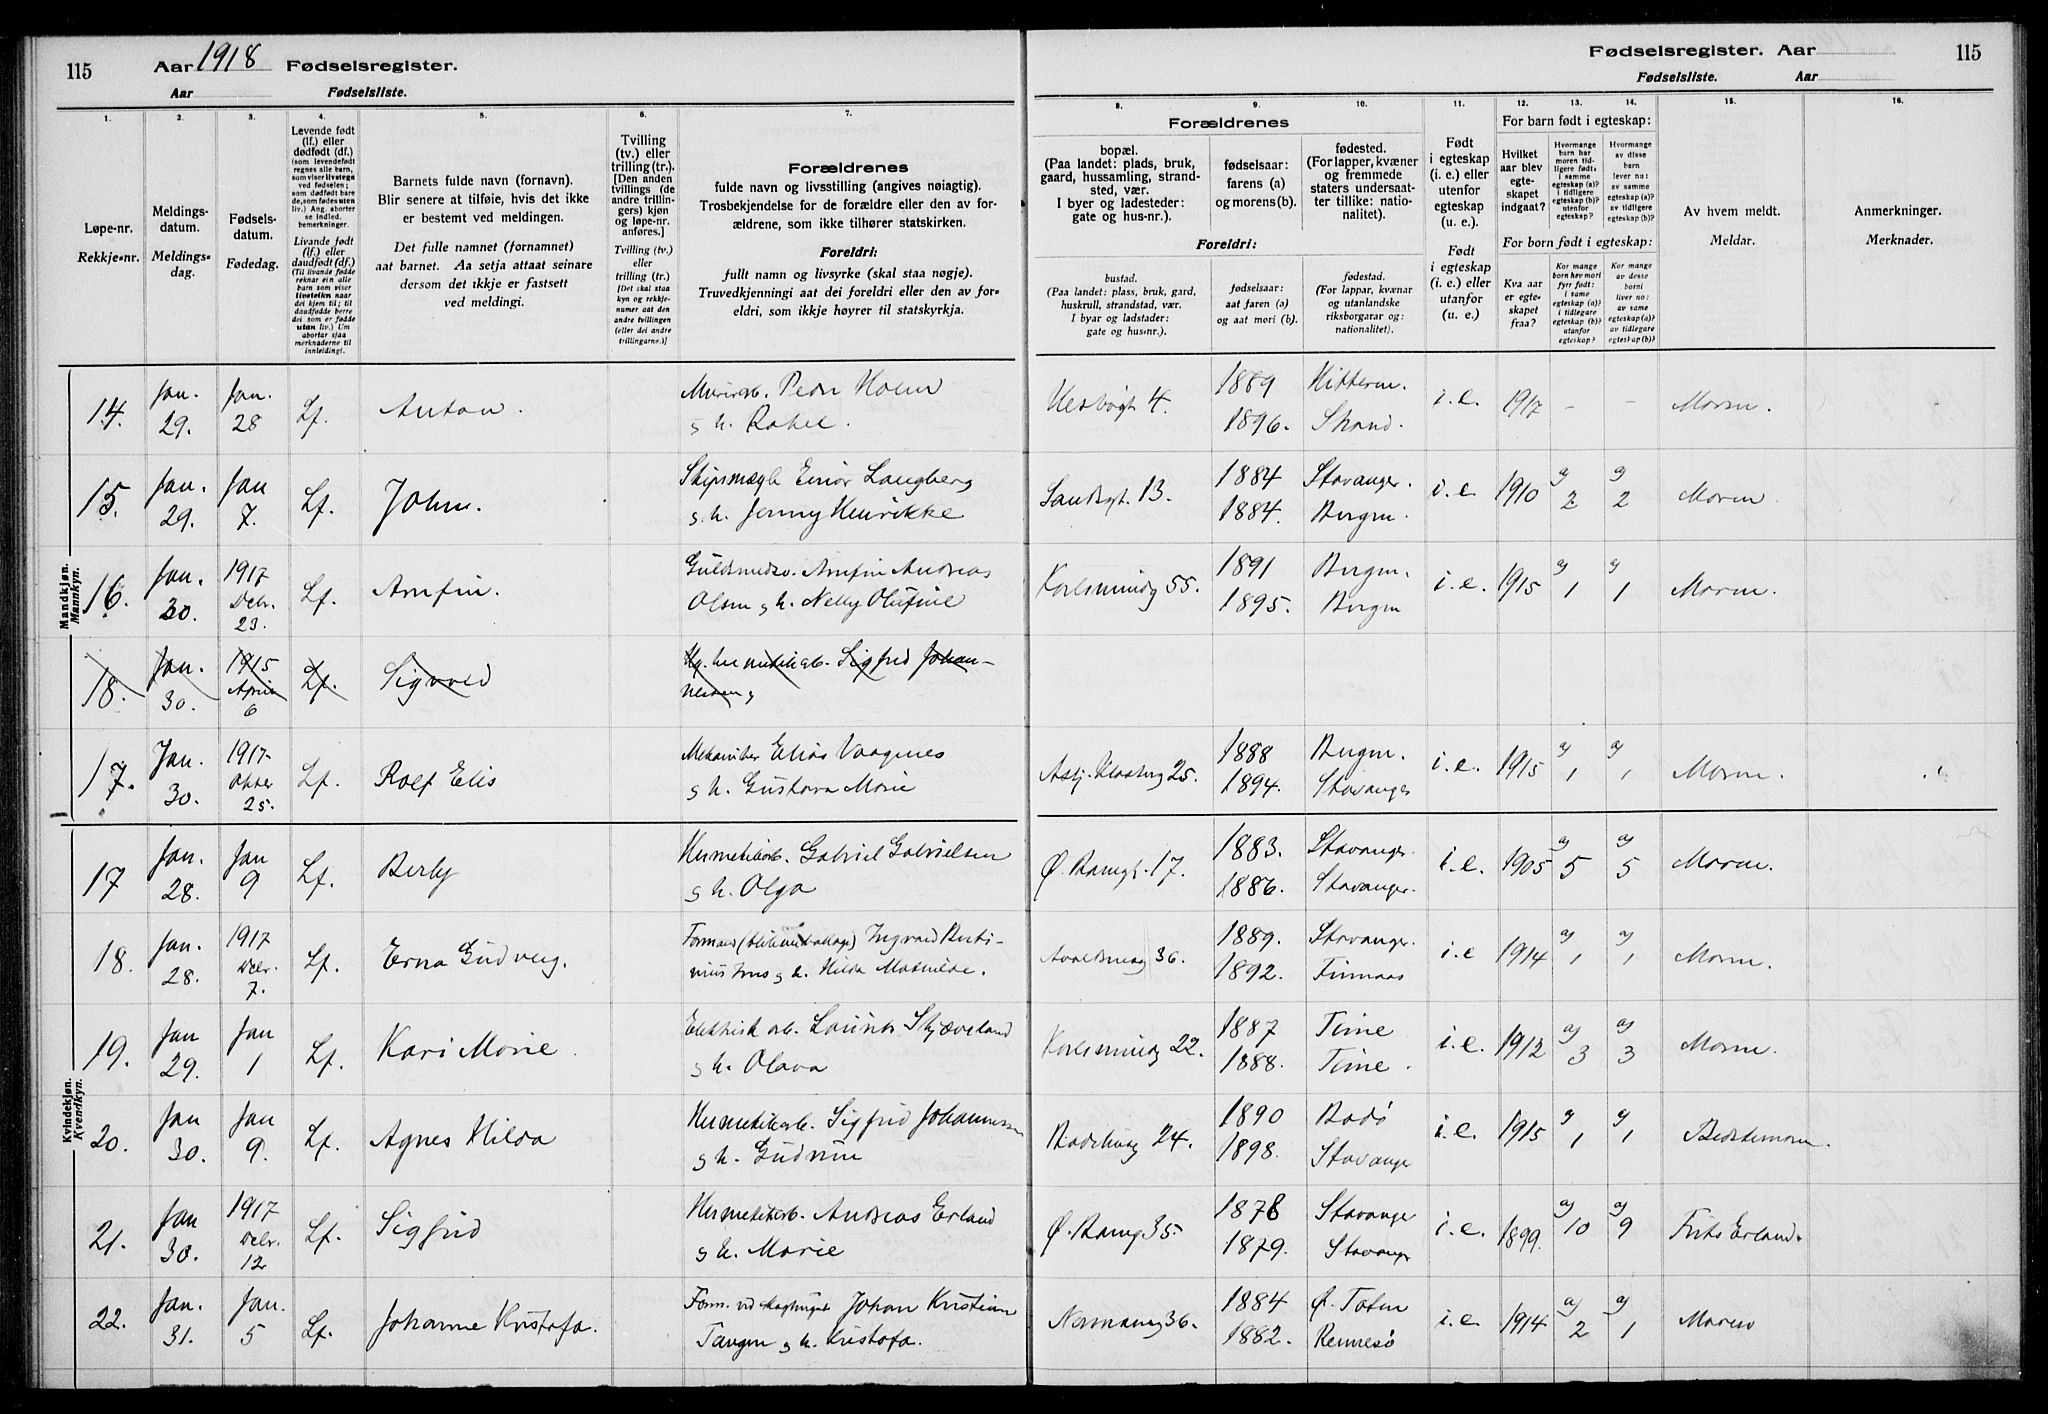 115 Aar 1918 Fødselsregister.
Aar Fødselsliste.
Fødselsregister. Aar 115
Fødselsliste. Aar
1. 2. 3. 4. 5. 6. 7. 8. 9. 10. 11. 12. 13. 14. 15. 16.
Løpe-nr.
Rekkje-nr.
Meldings-
datum.
Meldings-
dag.
Fødsels-
datum.
Fødedag.
Levende født
(lf.) eller
dødfødt (df.)
(som levendefødt
regnes alle barn,
som viser livstegn
ved fødselen;
som dødfødt bare
de, som fødes uten
liv.) Ang. aborter
se indled.
bemerkninger.
Livande født
(lf.) eller
daudfødt (df.)
(Til livande fødde
reknar ein alle
barn som viser
livsteikn naar
dei kjem til; til
daudfødde berre
dei som er fødde
utan liv.) Um
abortar sjaa
merknaderne til
innleidingi.
Barnets fulde navn (fornavn).
Blir senere at tilføie, hvis det ikke
er bestemt ved meldingen.
Det fulle namnet (fornamnet)
aat barnet. Aa setja attaat seinare
dersom det ikkje er fastsett
ved meldingi.
Tvilling
(tv.) eller
trilling (tr.).
[Den anden
tvillings (de
andre trillin-
gers) kjøn
og løpe-nr.
anføres.]
Tvilling (tv.)
eller
trilling (tr.)
[Det skal staa
kyn og rekkje-
numer aat den
andre tvillingen
(eller dei andre
trillingarne.)]
Forældrenes
fulde navn og livsstilling (angives nøiagtig).
Trosbekjendelse for de forældre eller den av for-
ældrene, som ikke tilhører statskirken.
Foreldri:
fullt namn og livsyrke (skal staa nøgje).
Truvedkjenningi aat dei foreldri eller den av for-
eldri, som ikkje høyrer til statskyrkja.
Forældrenes
bopæl.
(Paa landet: plads, bruk,
gaard, hussamling, strand-
sted, vær.
I byer og ladesteder:
gate og hus-nr.).
fødselsaar:
farens (a)
og morens (b).
fødested.
(For lapper, kvæner
og fremmede
staters undersaat-
ter tillike: natio-
nalitet).
Foreldri:
bustad.
(Paa landet: plass, bruk, gard,
huskrull, strandstad, vær.
I byar og ladstader:
gate og hus-nr.).
fødselsaar:
aat faren (a)
og aat mori (b).
fødestad.
(For lappar, kvænar
og utanlandske
riksborgarar og:
nationalitet).
Født
i egteskap
(i. e.) eller
utenfor
egteskap
(u. e.).
Født
i egteskap
(i. e.) eller
utanfor
(u. e.)
For barn født i egteskap:
Hvilket
aar blev
egte-
skapet
indgaat?
Hvormange
barn har
moren tid-
ligere født:
i samme
egteskap (a)?
i tidligere
egteskap (b)?
utenfor
egteskap?
Hvormange
av disse
barn
lever nu:
av samme
egteskap (a)?
av tidligere
egteskap (b)?
For born født i egteskap:
Kva aar
er egte-
skapet
fraa?
Kor mange
born hev mori
fyrr født:
i same
egteskap (a)?
i tidlegare
egteskap (b)?
utanfor
egteskap?
Kor mange
av desse
borni
liver no:
av same
egteskap (a)?
av tidlegare
egteskap (b)?
Av hvem meldt.
Meldar.
Anmerkninger.
Merknader.
Mandkjøn.
Mannkyn.
14. Jan. 29. Jan. 28 Lf. Anton. Murerarb. Peder Holm
g h. Rakel. 4. 1889 Hitterø.
1896. Strand. i.e. 1917 - - Moren.
15. Jan. 29. Jan 7. Lf. John. Skipsmægl. Einar Langberg
g. h. Jenny Henrikke Sandsgt. 13. 1884 Stavanger.
1884. Bergen. i.e. 1910 a) 2 a) 2 Moren
16. Jan. 30. 1917 Debr. 23. Lf. Arnfin. Guldsmedsv. Arnfin Andreas
Olsen g h. Nelly Olufine Karlsminneg 55. 1891 Bergen.
1895. Bergen i.e. 1915 a) 1 a) 1 Moren.
18. Jan. 30. 1915 April 6 Lf. Sigvard Hg. hermetikarb. Sigfrid Johan-
nessen g
17. Jan. 30. 1917 Oktber 25. Lf. Rolf Elis Mekaniker Elias Vaagenes
g h. Gustava Marie Asbj. Klosterg 25. 1888 Bergen.
1894. Stavanger i.e. 1915 a) 1 a) 1 Moren.
Kvindekjøn.
Kvendkyn.
17 Jan. 28. Jan 9 Lf. Berly Hermetikarb. Gabriel Gabrielsen
g h. Olga Ø. Ramgt. 17. 1883. Stavanger.
1886. Stavanger. i.e. 1905 a) 5 a) 5 Moren.
18. Jan. 28. 1917 Debr. 7. Lf. Erna Gudveig. Formand Ingvald Berti-
nius g h. Hilda Mathilde. Avaldsneg 36. 1889. Stavanger.
1892. Finnaas i.e 1914 a) 1 a) 1 Moren.
19. Jan 29. Jan 1 Lf. Kari Marie. Elektrisk arb. Laurits Skjæveland
g h. Olava Karlsminneg 22. 1887 Time
1888. Time. i.e. 1912 a) 3 a) 3 Moren.
20. Jan 30. Jan 9. Lf. Agnes Hilda Hermetikarb. Sigfrid Johannessen
g h. Gudrun Badehusg 24. 1890 Bodø
1898. Stavanger i.e. 1915 a) 1 a) 1 Bedstemoren.
21. Jan 30. 1917 Debr. 12 Lf. Sigfrid Hermetikarb. Andreas Erland
g h. Marie Ø. Ramg 35. 1878 Stavanger
1879. Stavanger i.e. 1899. a) 10 a) 9 Frits Erland.
22. Jan. 31. Jan. 5 Lf. Johanne Kristofa. Form. ved Johan Kristian
Tangen g h. Kristofa. Normannsg 36. 1884 Ø. Toten
1882. Rennesø i.e. 1914 a) 2 a) 1 Moren